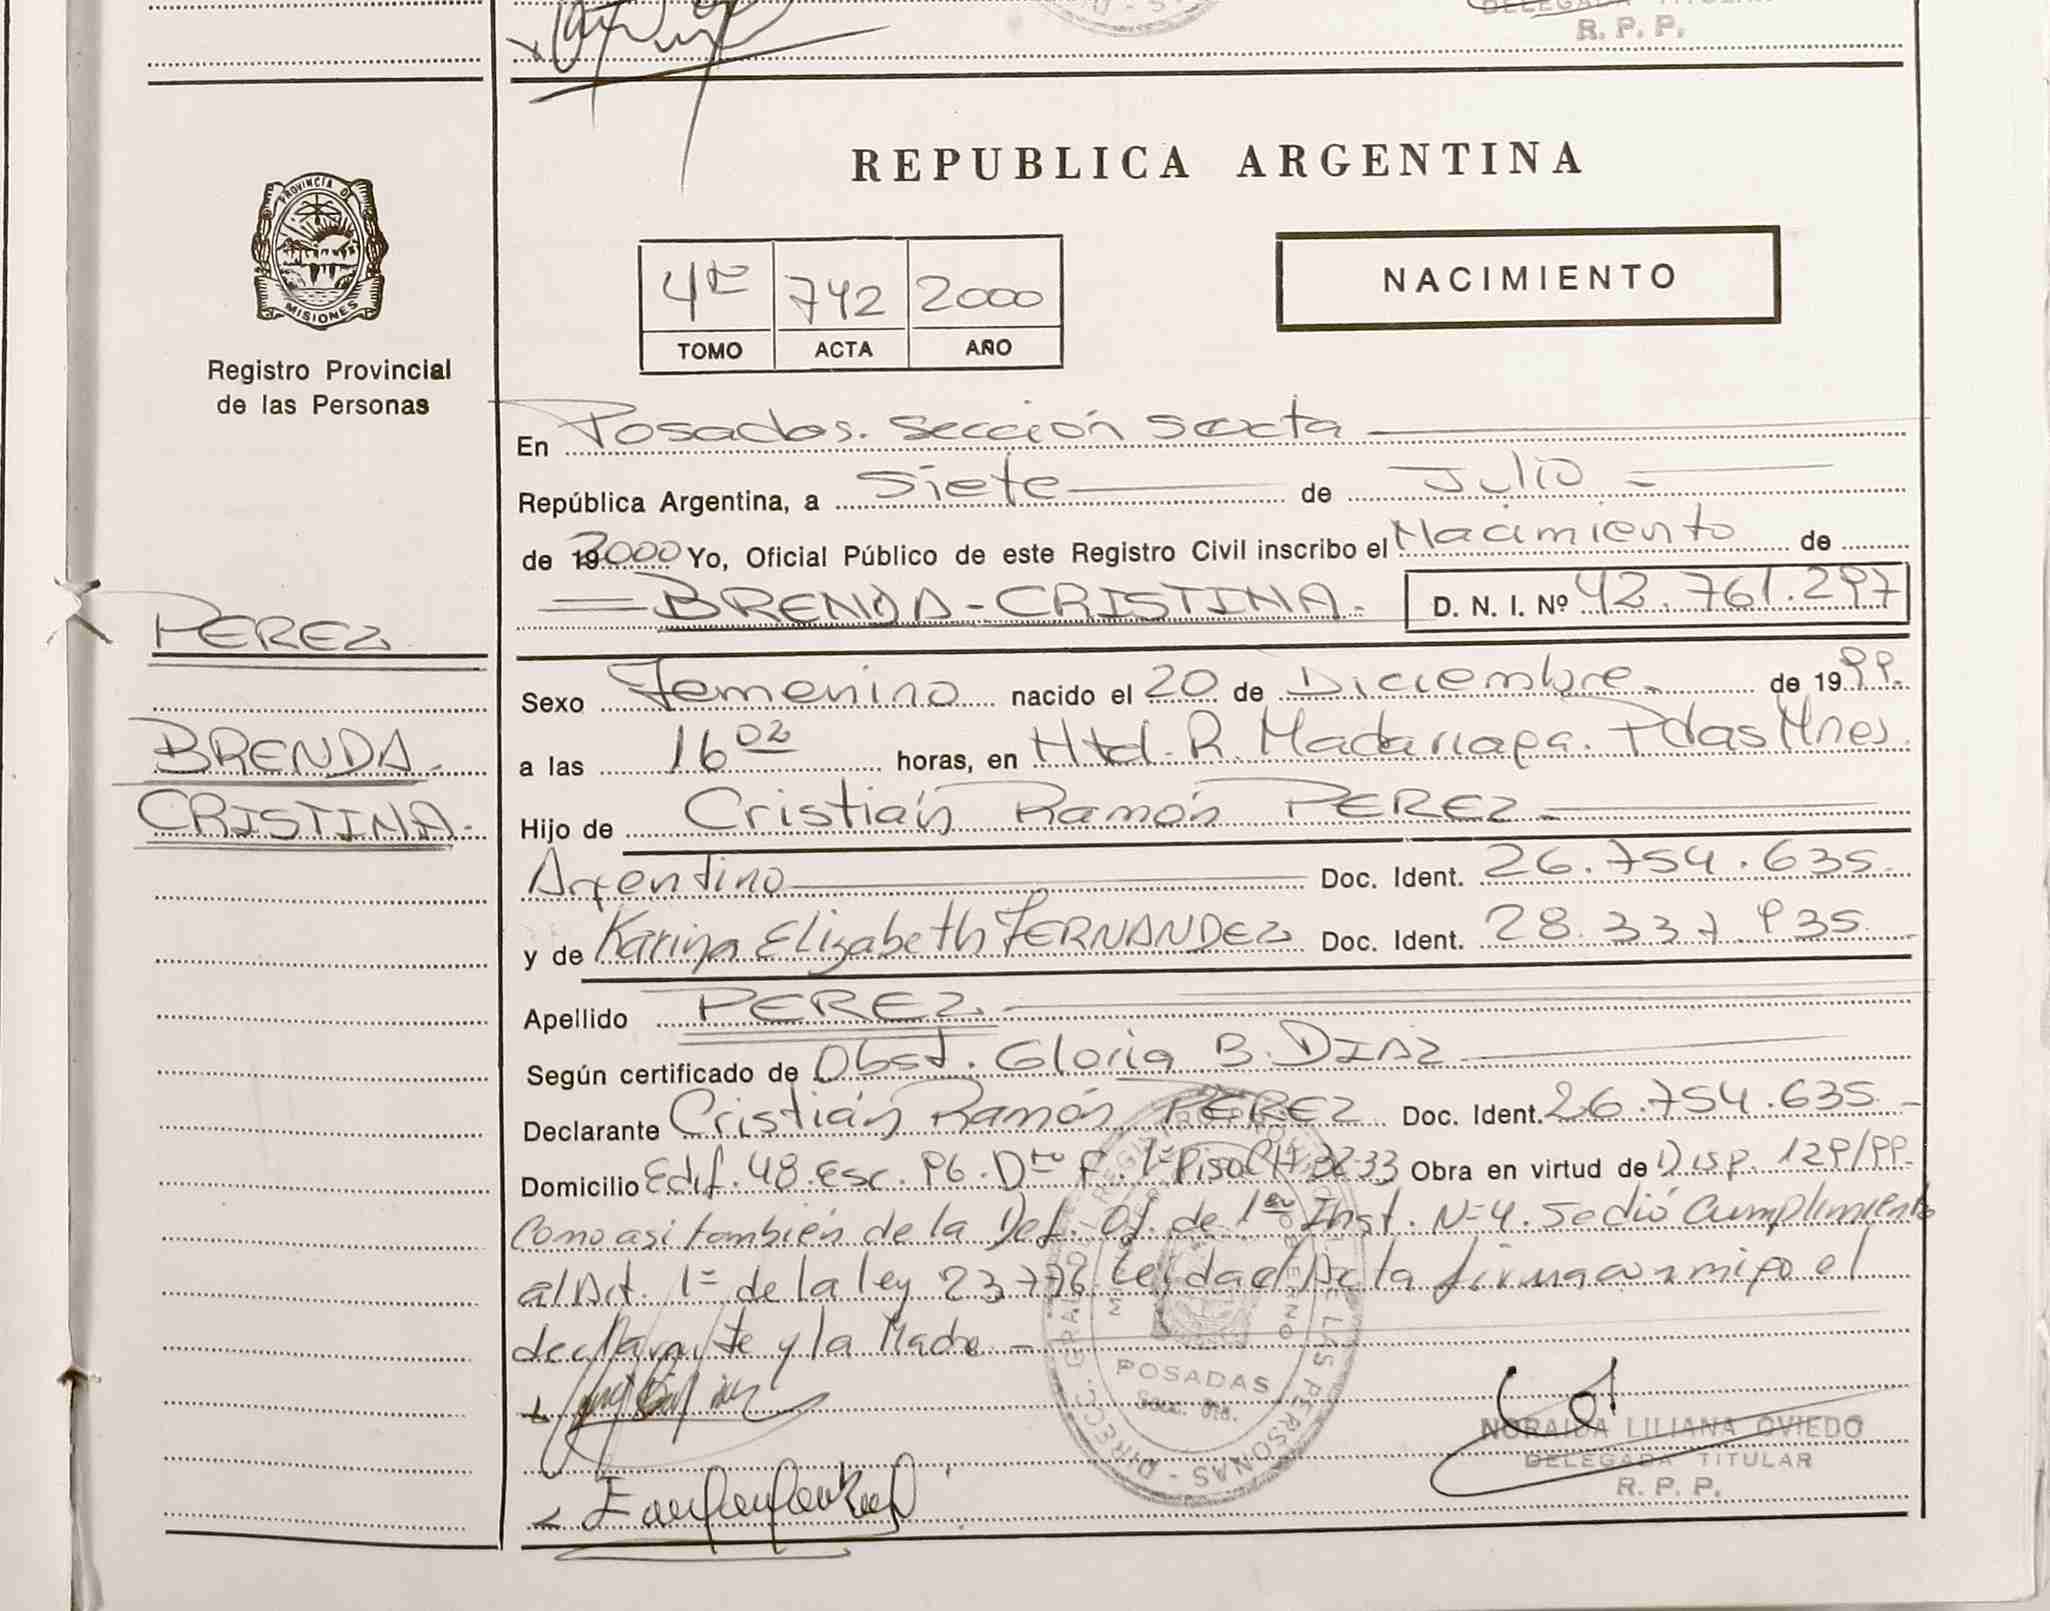 DELEGADA TITULAR
R. P. P.
PROVINCIA DE
MISIONES
Registro Provincial
de las Personas
PEREZ
BRENDA
CRISTINA
REPUBLICA ARGENTINA
4to 742 2000
TOMO ACTA AÑO
NACIMIENTO
En Posadas. Sección Sexta
República Argentina, a Siete de Julio
de 192000 Yo, Oficial Público de este Registro Civil inscribo el Nacimiento de
BRENDA - CRISTINA. D. N. I. Nº 42.761.297
Sexo Femenino nacido el 20 de Diciembre de 1999.
a las 16 02 horas, en Htal. R. Madariaga. Pdas Mnes.
Hijo de Cristián Ramón PEREZ
Argentino Doc. Ident. 26.754.635.
y de Karina Elizabeth FERNANDEZ Doc. Ident. 28.337.935.
Apellido PEREZ
Según certificado de Obst. Gloria B. DIAZ
Declarante Cristián Ramón PEREZ Doc. Ident. 26.754.635
Domicilio Edif. 48. Esc. 96. Dto F. 1º Piso CH 3233 Obra en virtud de Disp. 129/99.
Como asi también de la Def. Of. de 1ra Inst. Nº 4. Se dió Cumplimiento
al Art. 1º de la ley 23.776 Leida el Acta firma conmigo el
declarante y la Madre
POSADAS
Secc. 6ta.
NORAIDA LILIANA OVIEDO
DELEGADA TITULAR
R. P. P.